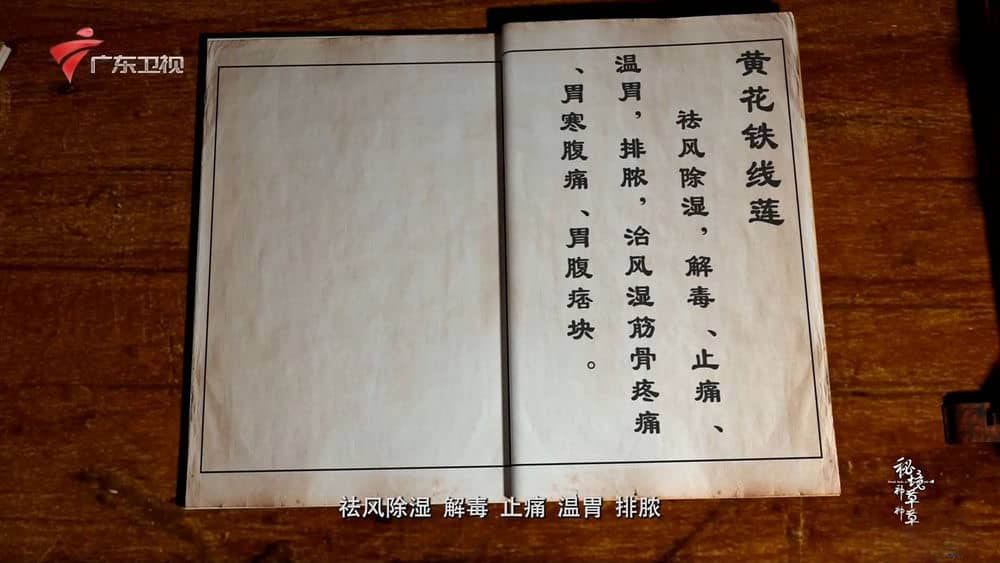 广东卫视
黄花铁线莲
祛风除湿，解毒、止痛、
温胃，排脓，治风湿筋骨疼痛
、胃寒腹痛、胃腹痞块。
祛风除湿 解毒 止痛 温胃 排脓
秘境神草